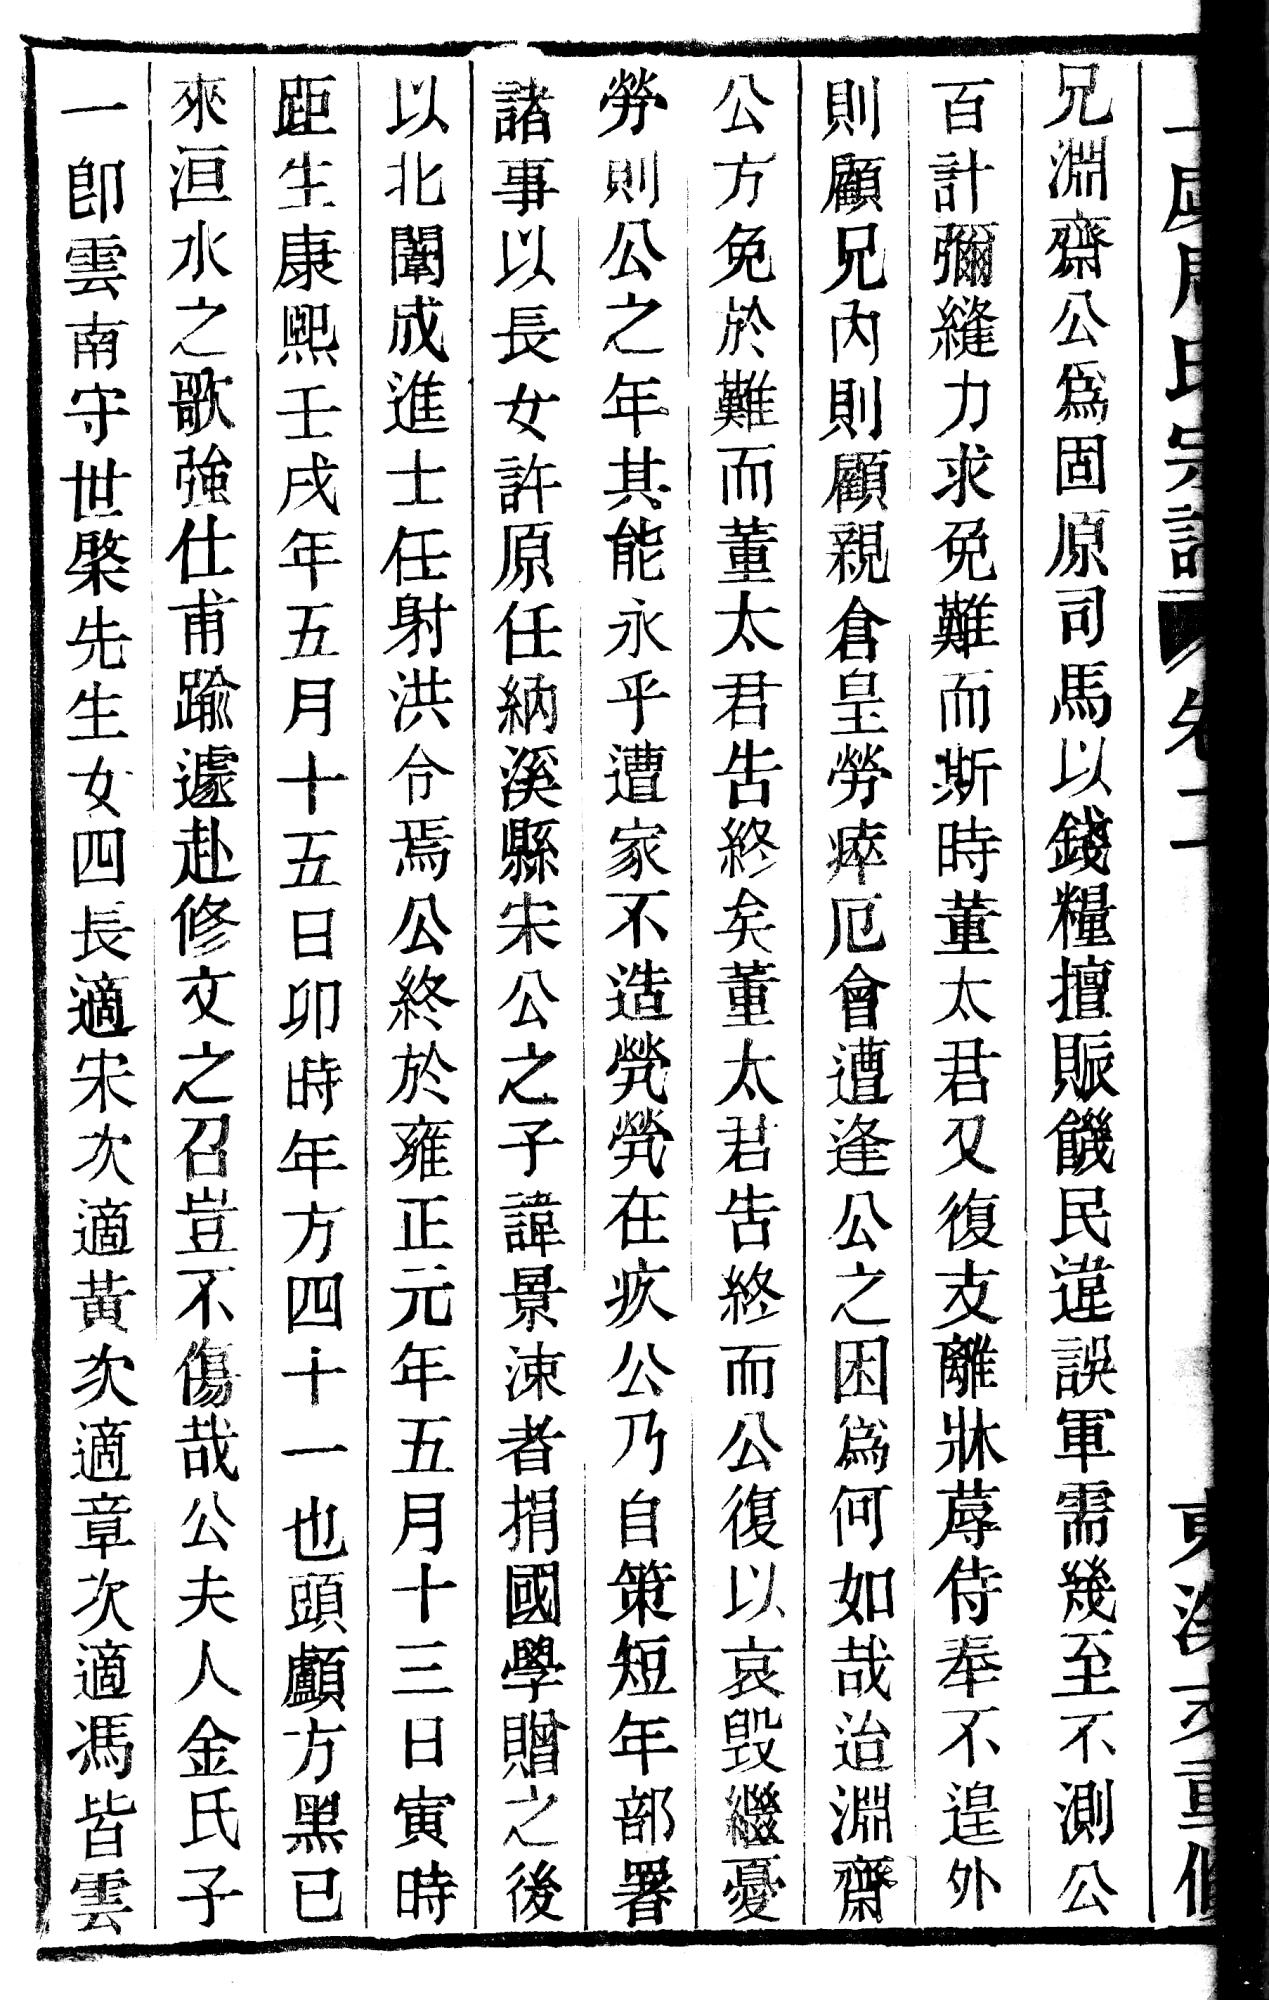 氏宗譜 卷二
兄淵齋公爲固原司馬以錢糧擅賑饑民違誤軍需幾至不測公
百計彌縫力求免難而斯時董太君又復支離牀蓐侍奉不遑外
則顧兄內則顧親倉皇勞瘁厄會遭逢公之困爲何如哉迨淵齋
公方免於難而董太君告終矣董太君告終而公復以哀毀繼憂
勞則公之年其能永乎遭家不造煢煢在疚公乃自策短年部署
諸事以長女許原任納溪縣宋公之子諱景涑者捐國學贈之後
以北闈成進士任射洪令焉公終於雍正元年五月十三日寅時
距生康熙壬戌年五月十五日卯時年方四十一也頭顱方黑已
來洹水之歌強仕甫踰遽赴修文之召豈不傷哉公夫人金氏子
一卽雲南守世棨先生女四長適宋次適黃次適章次適馮皆雲